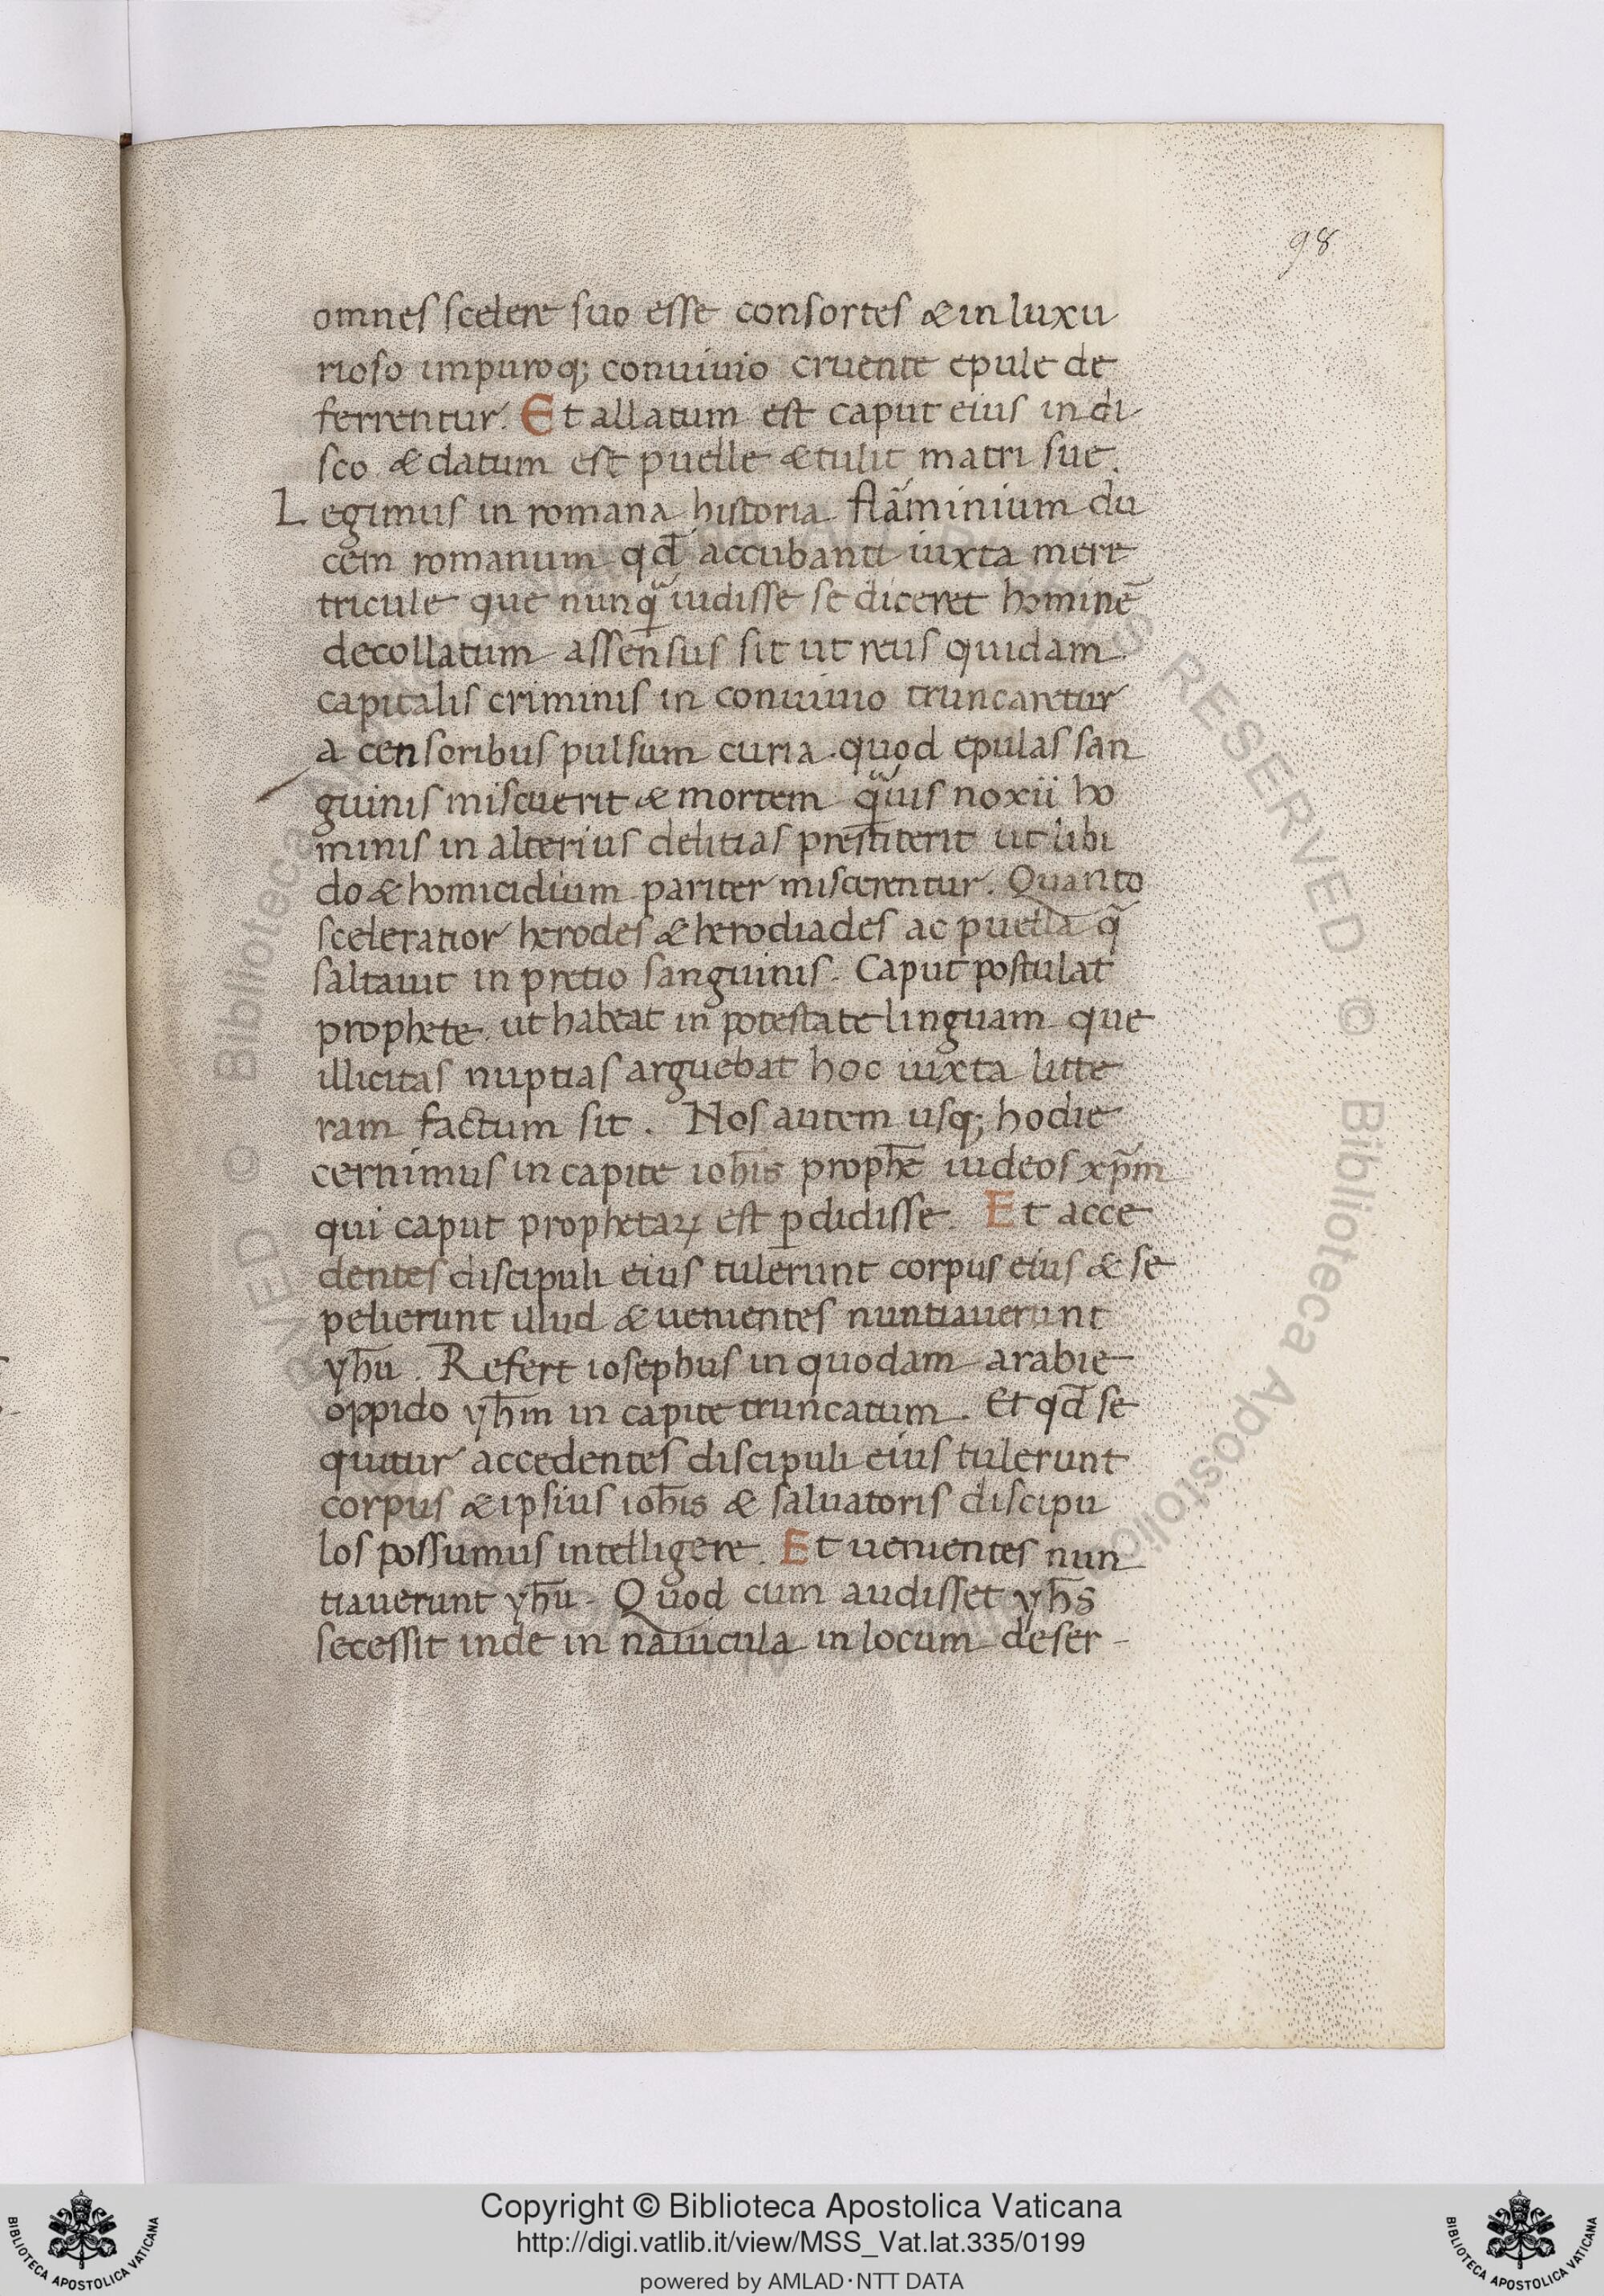 98
omnes scelere suo esse consortes & in luxu
rioso impuroq; conuiuio cruente epule de
ferrentur. Et allatum est caput eius in di
sco & datum est puelle & tulit matri sue.
Legimus in romana historia flãminium du
cem romanum qd̄ accubanti iuxta mere
tricule que nunq̃ uidisse se diceret hominē
decollatum assensus sit ut reus quidam
capitalis criminis in conuiuio truncaretur
a censoribus pulsum curia. quod epulas san
guinis miscuerit & mortem q̃uis noxii ho
minis in alterius delitias prestiterit ut libi
do & homicidium pariter miscerentur. Quanto
sceleratior herodes & herodiades ac puella q̃
saltauit in pretio sanguinis. Caput postulat
prophete. ut habeat in potestate linguam que
illicitas nuptias arguebat hoc iuxta litte
ram factum sit. Nos autem usq; hodie
cernimus in capite ioh̄is proph̄e iudeos xp̄m
qui caput prophetaꝝ est ꝑdidisse. Et acce
dentes discipuli eius tulerunt corpus eius & se
pelierunt illud & uenientes nuntiauerunt
yh̄u. Refert iosephus in quodam arabie
oppido yh̄m in capite truncatum. Et qd̄ se
quitur accedentes discipuli eius tulerunt
corpus & ipsius ioh̄is & saluatoris discipu
los possumus intelligere. Et uenientes nun
tiauerunt yh̄u. Quod cum audisset yh̄s
secessit inde in nauicula in locum deser-
Copyright © Biblioteca Apostolica Vaticana
http://digi.vatlib.it/view/MSS_Vat.lat.335/0199
powered by AMLAD·NTT DATA
BIBLIOTECA APOSTOLICA VATICANA
BIBLIOTECA APOSTOLICA VATICANA